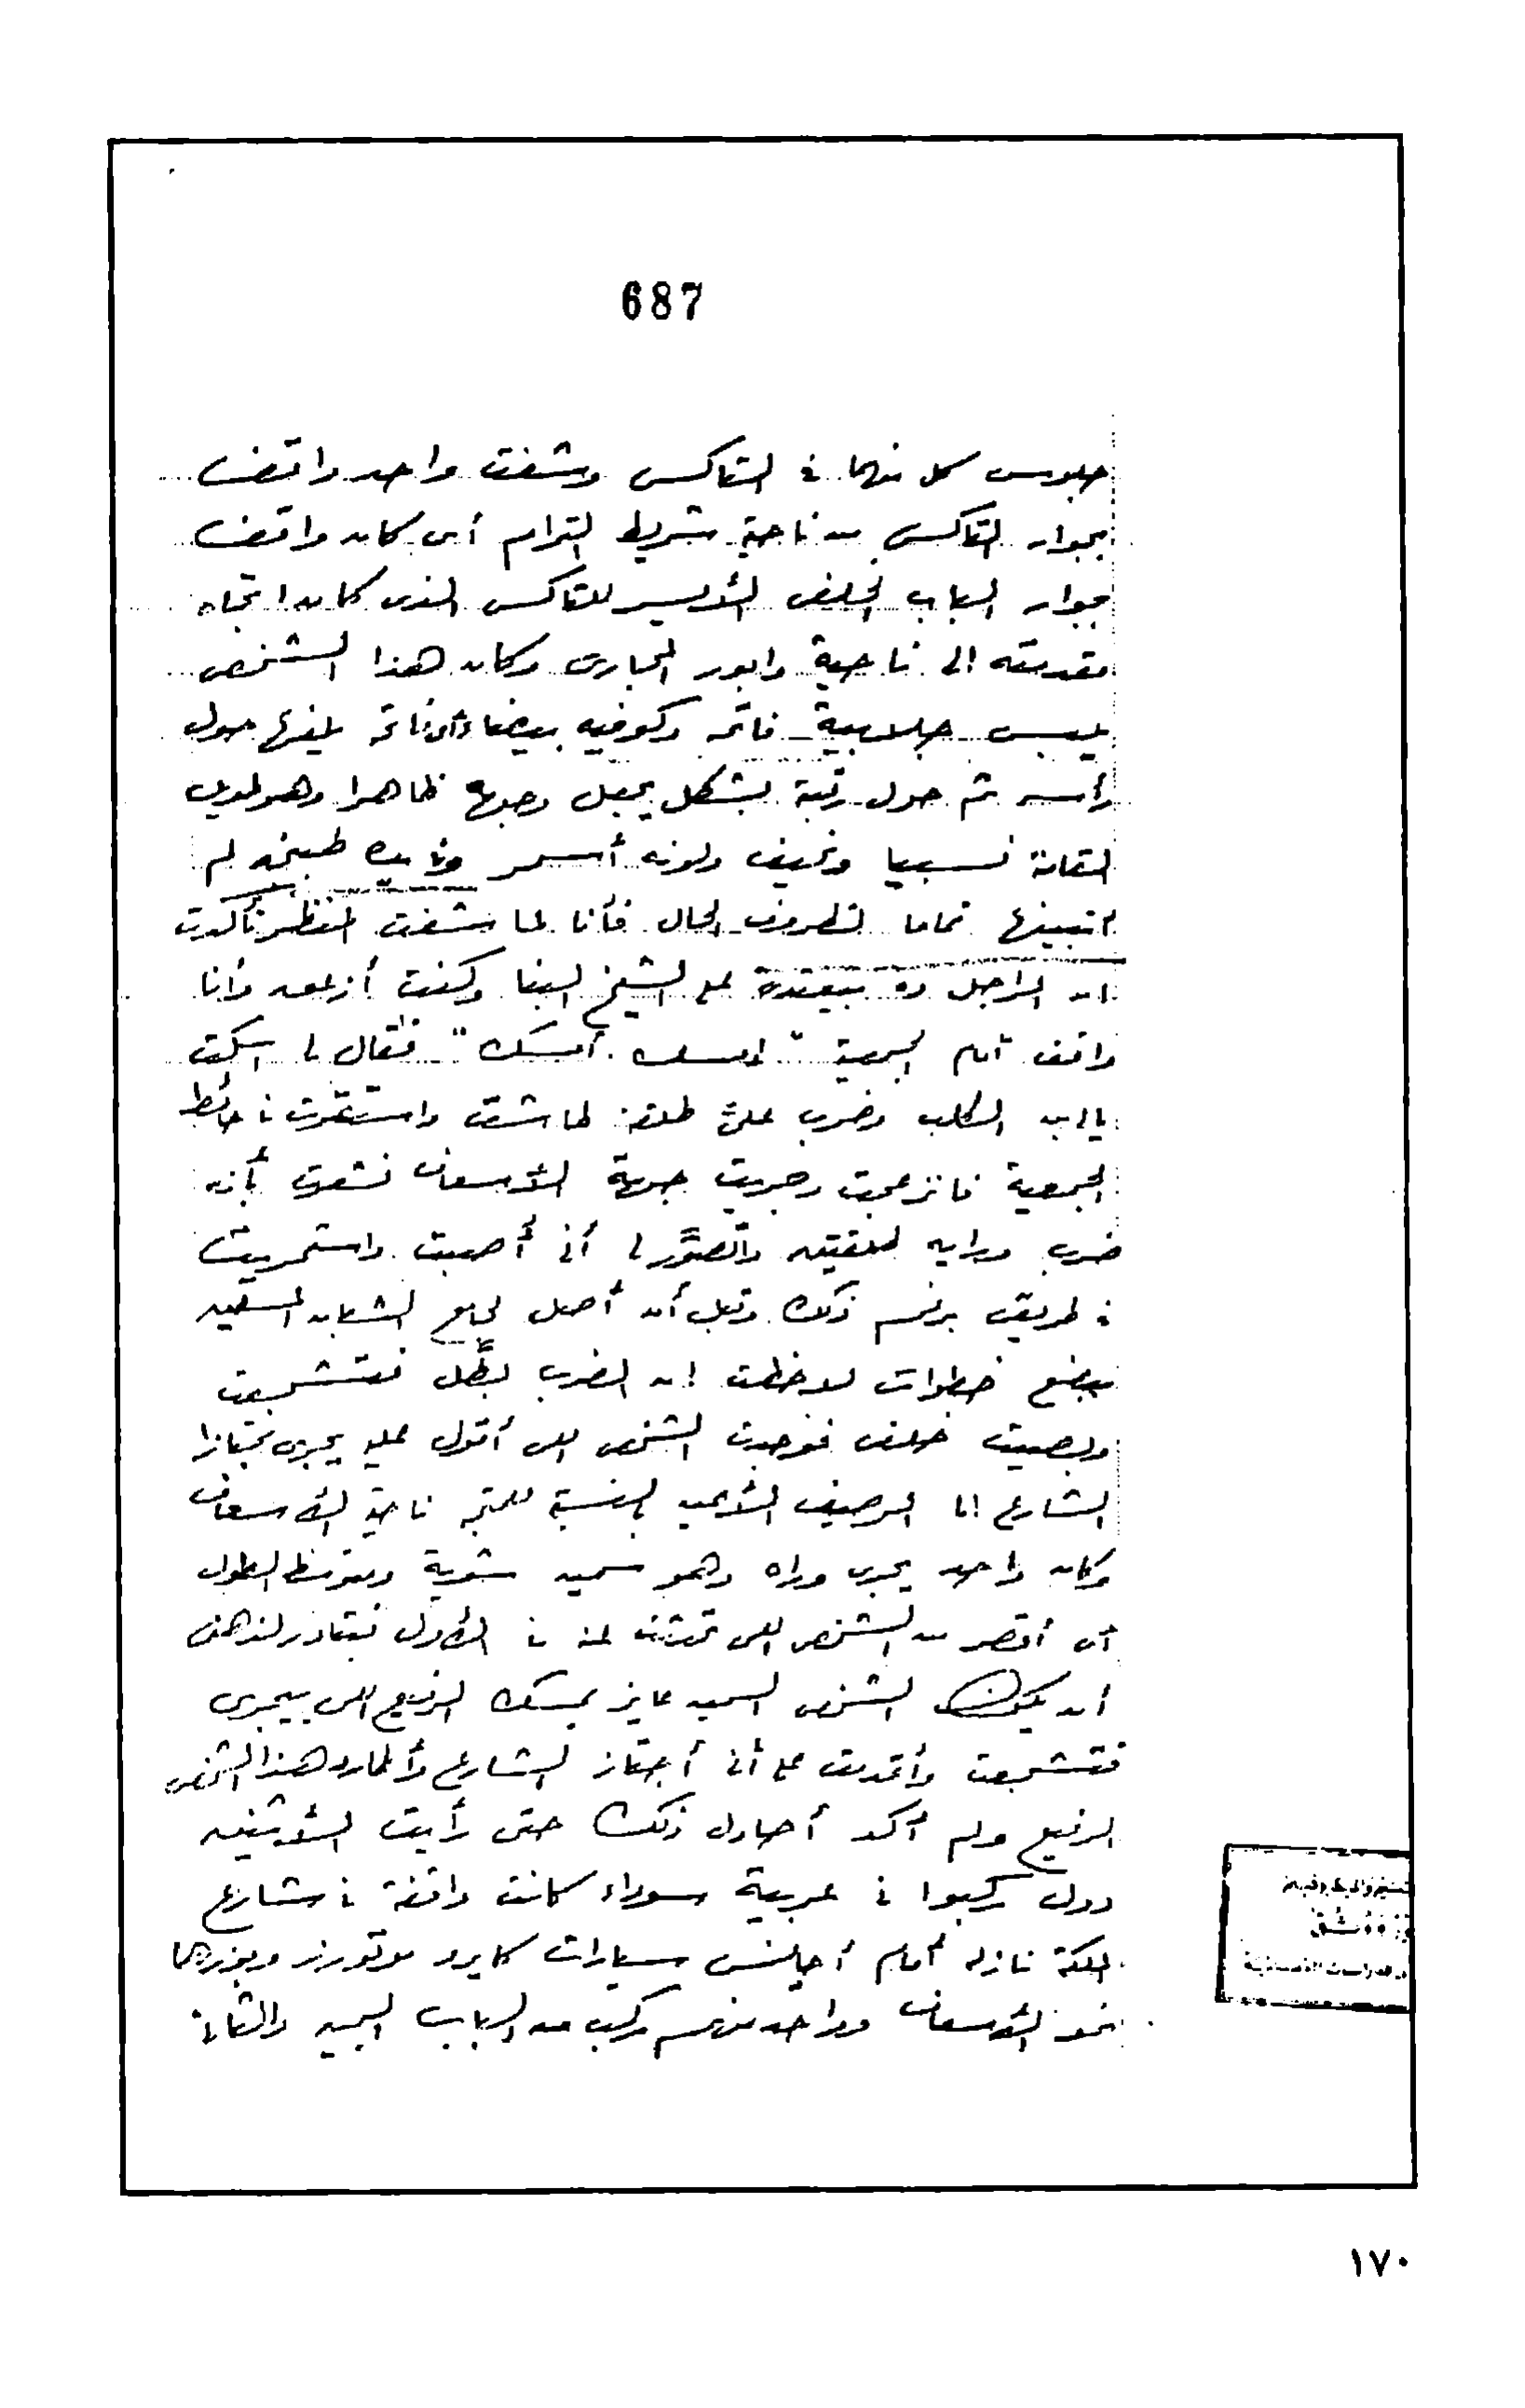 687
جلوس كل منهما فى التاكس وشفت واحد واقف
بجوار التاكس من ناحية شريط الترام أى كان واقف
جوار الباب الخلفى الأيسر للتاكس الذى كان اتجاه
مقدمته الى ناحية وابور المجارى وكان هذا الشخص
يلبس جلابية فاتحه وكوفيه بيضاء أو فاتحه يلفها حول
رأسه ثم حول رقبته بشكل يجعل وجهه ظاهرا وهو طويل
القامة نسبيا ونحيف ولونه أسمر وفى يده طبنجه لم
اتبينها تماما لظروف الحال فأنا لما شفت المنظر تأكدت
ان الراجل ده بيعتدى على الشيخ البنا وكنت أزعق وأنا
واقف أمام الجمعية " امسك . أمسك " فقال لى اسكت
يا ابن الكلب وضرب علىّ طلقة لما شفت واستقرت فى حائط
الجمعية فانزعجت وجريت جهة الأسعاف فشعرت بأنه
ضرب ورايه طلقتين واتصوّر لى أنى أصبت واستمريت
فى طريقى برغم ذلك وقبل أن أصل لجامع الشبان المسلمين
ببضع خطوات لاحظت ان الضرب بطّل فتشجعت
وبصيت خلفى فوجدت الشخص اللى أقول عليه يجرى مجتازا
الشارع الى الرصيف الأيمن بالنسبة للمتجه ناحية الأسعاف
وكان واحد يجرى وراه وهو سمين شوية ومتوسط الطول
أى أقصر من الشخص اللى تحدثت عنه فى الأول فتبادر لذهنى
أن يكون الشخص السمين عايز يمسك الرفيع اللى بيجرى
فتشجعت وأقدمت على أنى أجتاز الشارع وأطارد هذا الشخص
الرفيع ولم أكد أحاول ذلك حتى رأيت الأثنين
دول ركبوا فى عربية سوداء كانت واقفة فى شارع
الملكة نازلى أمام أجانس سيارات كايرو موتورز وبوزها
نحو الأسعاف وواحد منهم ركب من الباب اليمين والثانى
١٧٠